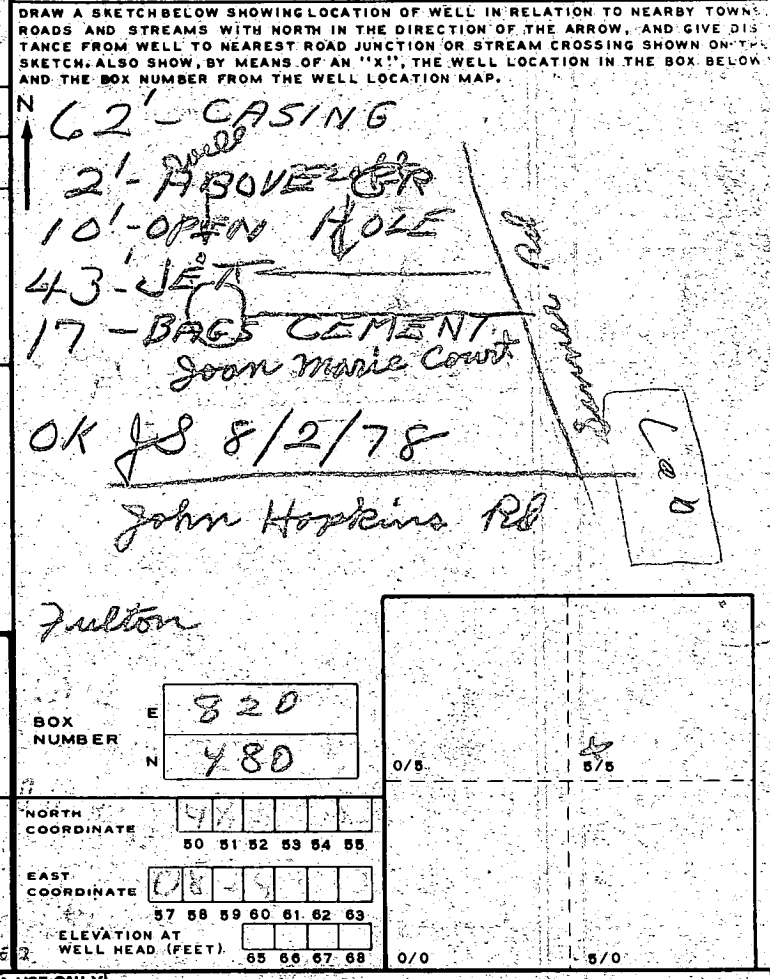 DRAW A SKETCH BELOW SHOWING LOCATION OF WELL IN RELATION TO NEARBY TOWNS
ROADS AND STREAMS WITH NORTH IN THE DIRECTION OF THE ARROW, AND GIVE DIS
TANCE FROM WELL TO NEAREST ROAD JUNCTION OR STREAM CROSSING SHOWN ON THE
SKETCH. ALSO SHOW, BY MEANS OF AN "X", THE WELL LOCATION IN THE BOX BELOW
AND THE BOX NUMBER FROM THE WELL LOCATION MAP.
N
62' - CASING
well
2' - ABOVE GR
10' - OPEN HOLE
43' - JET
17 - BAGS CEMENT
Joan Marie Court
Rd
OK JS 8/2/78
John Hopkins Rd
Fulton
BOX NUMBER
E 820
N 480
0/5 5/5
NORTH COORDINATE
50 51 52 53 54 55
EAST COORDINATE
57 58 59 60 61 62 63
ELEVATION AT WELL HEAD (FEET)
65 66 67 68
0/0 5/0